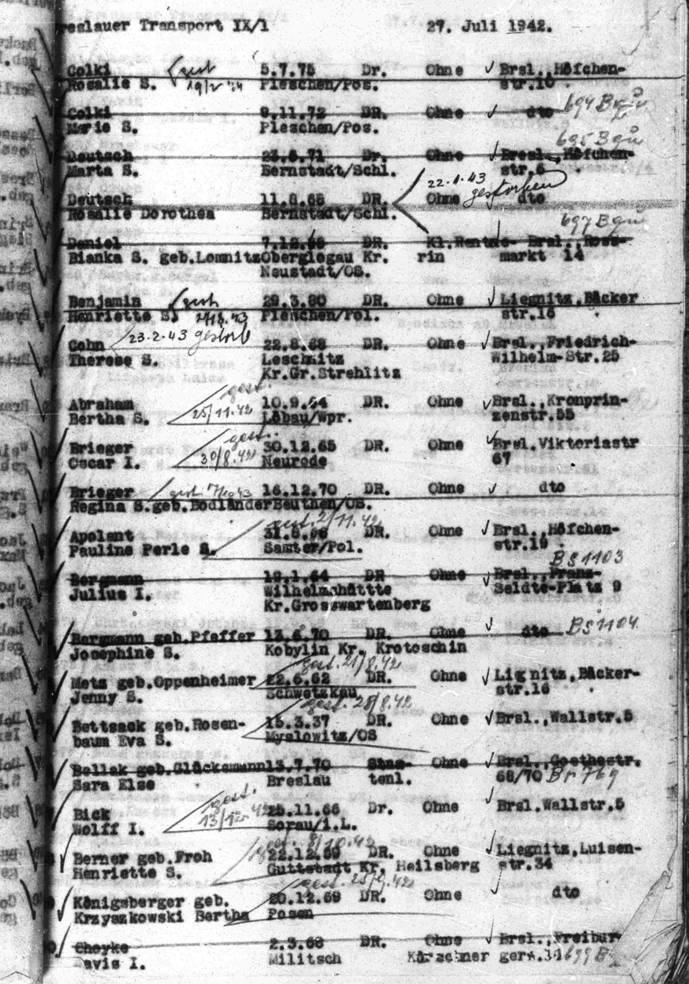 reslauer Transport IX/1 27. Juli 1942.
Colki gest 5.7.75 Dr. Ohne Brsl.,Höfchen-
Rosalie S. Pleschen/Pos. str.10
Colki 9.11.72 DR. Ohne dto 694
Marie S. Pleschen/Pos.
Deutsch Dr. Ohne Bresl., Höfchen- 695
Marta S. Bernstadt/Schl. str.6
22.1.43 gestorben
Deutsch 11.8.68 DR. Ohne dto
Rosalie Dorothea Bernstadt/Schl.
697
Daniel DR. Kl.Rentne- Bral.,Ross-
Bianka S. geb.Lomnitz Oberglogau Kr. rin markt 14
Neustadt/OS.
Benjamin gest 29.3.80 DR. Ohne Liegnitz,Bäcker
Henriette S. Pleschen/Pol. str.16
Cohn 23.2.43 gestorb 22.8.68 DR. Ohne Brsl.,Friedrich-
Therese S. Leschnitz Wilhelm-Str.25
Kr.Gr.Strehlitz
Abraham gest. 10.9.64 DR. Ohne Brsl.,Kronprin-
Bertha S. 25/11.42 Löbau/Wpr. zenstr.55
Brieger gest. 30.12.65 DR. Ohne Brsl.Viktoriastr
Oscar I. 30/8.42 Neurode 67
Brieger gest. 16.12.70 DR. Ohne dto
Regina S.geb.Bodländer Beuthen/OS.
gest. 2/11.42
Apolant DR. Ohne Brsl.,Höfchen-
Pauline Perle S. Samter/Pol. str.19
BS 1103
Bergmann 19.1.64 DR Ohne Brsl.,Franz-
Julius I. Wilhelmshüttte Seldte-Platz 9
Kr.Grosswartenberg
Bergmann geb.Pfeffer 13.6.70 DR. Ohne dto BS 1104
Josephine S. Kobylin Kr. Krotoschin
gest. 21/8.42
Metz geb.Oppenheimer 22.6.62 DR. Ohne Lignitz,Bäcker-
Jenny S. Schwetzkau str.16
gest. 28/8.42
Bettsack geb.Rosen- 15.3.37 DR. Ohne Brsl.,Wallstr.5
baum Eva S. Myslowitz/OS
Bellak geb.Glücksmann 13.7.70 Staa- Ohne Brsl.,Goethestr.
Sara Else Breslau tenl. 68/70 Br 769
Bick gest. 25.11.66 Dr. Ohne Brsl.Wallstr.5
Wolff I. Sorau/i.L.
Berner geb.Froh 22.12.69 DR. Ohne Liegnitz,Luisen-
Henriette S. Guttstadt Kr. Heilsberg str.34
Königsberger geb. 20.12.69 DR. Ohne dto
Krzyszkowski Bertha Posen
Choyke 2.3.68 DR. Ohne Brsl.,Freibur-
avis I. Militsch Kürschner gerw.31 699 B